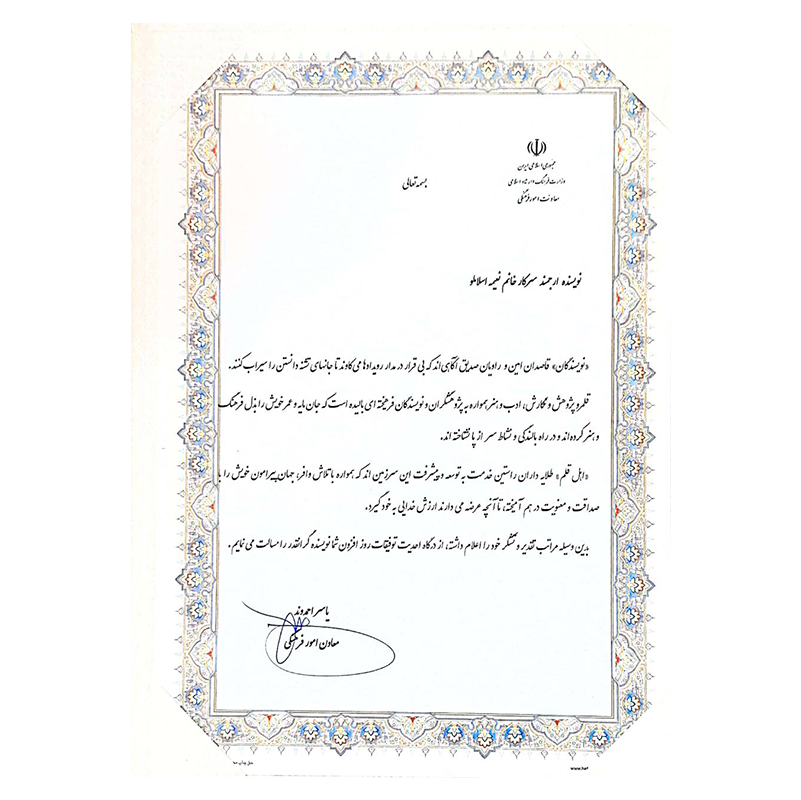 جمهوری اسلامی ایران
وزارت فرهنگ و ارشاد اسلامی
معاونت امور فرهنگی
بسمه تعالی
نویسنده ارجمند سرکار خانم نعیمه اسلاملو
«نویسندگان» قاصدان امین و راویان صدیق آگاهی اند که بی قرار در مدار رویدادها می کاوند تا جانهای تشنه دانستن را سیراب کنند.
قلمرو پژوهش و نگارش، ادب و هنر همواره به پژوهشگران و نویسندگان فرهیخته ای بالیده است که جان مایه و عمر خویش را بذل فرهنگ
و هنر کرده اند و در راه بالندگی و نشاط سر از پا نشناخته اند.
«اهل قلم» طلایه داران راستین خدمت به توسعه و پیشرفت این سرزمین اند که همواره با تلاش وافر، جهان پیرامون خویش را با
صداقت و معنویت در هم آمیخته، تا آنچه عرضه می دارند ارزش خدایی به خود گیرد.
بدین وسیله مراتب تقدیر و تشکر خود را اعلام داشته، از درگاه احدیت توفیقات روز افزون شما نویسنده گرانقدر را مسالت می نمایم.
یاسر احمدوند
معاون امور فرهنگی